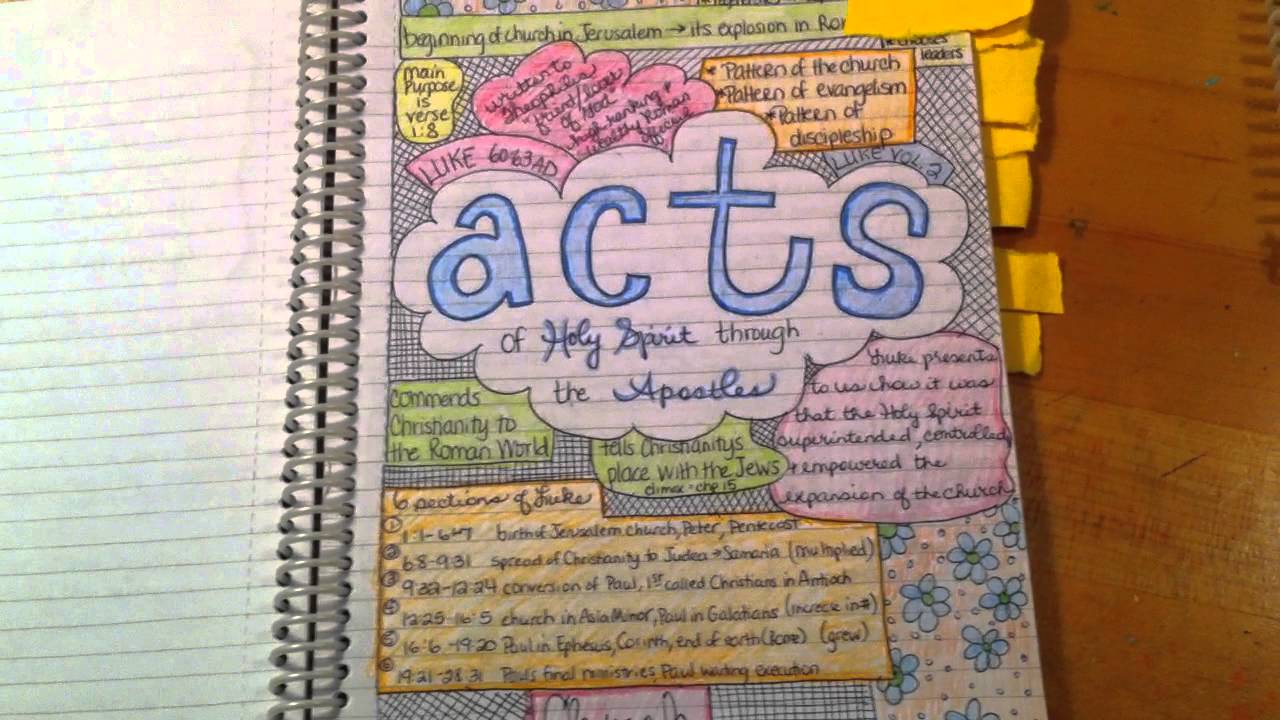 beginning of church in Jerusalem → its explosion in Rom
leaders
main
Purpose
is
verse
1:8
written to
theophilus
friend/lover
of God
high ranking +
wealthy Roman
official
* Pattern of the church
* Pattern of evangelism
* Pattern of
discipleship
LUKE 60-63AD
LUKE VOL. 2
acts
of Holy Spirit through
the Apostles
commends
Christianity to
the Roman World
tells Christianitys
place with the Jews
climax = chp 15
Luke presents
to us how it was
that the Holy Spirit
superintended, controlled
+ empowered the
expansion of the church
6 sections of Luke
① 1:1-6:7 birth of Jerusalem church, Peter, Pentecost
② 6:8-9:31 spread of Christianity to Judea → Samaria (multiplied)
③ 9:32-12:24 conversion of Paul, 1st called Christians in Antioch
④ 12:25-16:5 church in Asia Minor, Paul in Galatians (increase in #)
⑤ 16:6-19:20 Paul in Ephesus, Corinth, end of earth (Rome) (grew)
⑥ 19:21-28:31 Pauls final ministries, Paul waiting execution